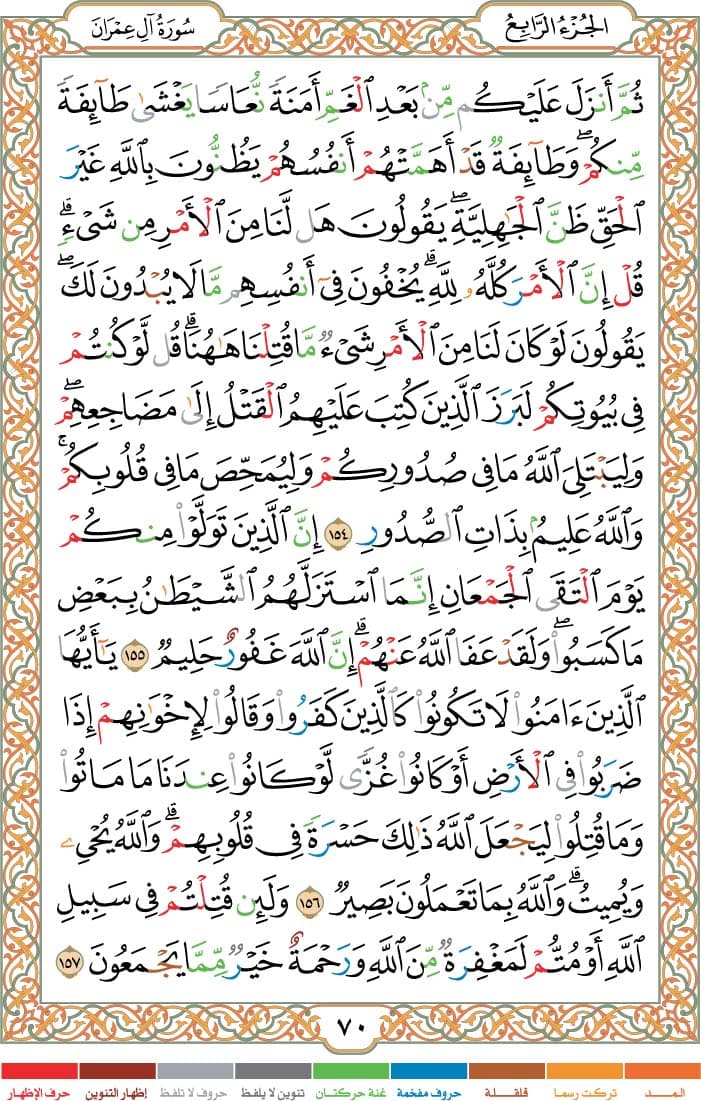 الجُزْءُ الرَّابِعُ
سُورَةُ آلِ عِمْرَانَ
ثُمَّ أَنزَلَ عَلَيْكُم مِّنۢ بَعْدِ ٱلْغَمِّ أَمَنَةً نُّعَاسًا يَغْشَىٰ طَآئِفَةً
مِّنكُمْ ۖ وَطَآئِفَةٌ قَدْ أَهَمَّتْهُمْ أَنفُسُهُمْ يَظُنُّونَ بِٱللَّهِ غَيْرَ
ٱلْحَقِّ ظَنَّ ٱلْجَٰهِلِيَّةِ ۖ يَقُولُونَ هَل لَّنَا مِنَ ٱلْأَمْرِ مِن شَىْءٍ ۗ
قُلْ إِنَّ ٱلْأَمْرَ كُلَّهُۥ لِلَّهِ ۗ يُخْفُونَ فِىٓ أَنفُسِهِم مَّا لَا يُبْدُونَ لَكَ ۖ
يَقُولُونَ لَوْ كَانَ لَنَا مِنَ ٱلْأَمْرِ شَىْءٌ مَّا قُتِلْنَا هَٰهُنَا ۗ قُل لَّوْ كُنتُمْ
فِى بُيُوتِكُمْ لَبَرَزَ ٱلَّذِينَ كُتِبَ عَلَيْهِمُ ٱلْقَتْلُ إِلَىٰ مَضَاجِعِهِمْ ۖ
وَلِيَبْتَلِىَ ٱللَّهُ مَا فِى صُدُورِكُمْ وَلِيُمَحِّصَ مَا فِى قُلُوبِكُمْ ۚ
وَٱللَّهُ عَلِيمٌۢ بِذَاتِ ٱلصُّدُورِ ١٥٤ إِنَّ ٱلَّذِينَ تَوَلَّوْا۟ مِنكُمْ
يَوْمَ ٱلْتَقَى ٱلْجَمْعَانِ إِنَّمَا ٱسْتَزَلَّهُمُ ٱلشَّيْطَٰنُ بِبَعْضِ
مَا كَسَبُوا۟ ۖ وَلَقَدْ عَفَا ٱللَّهُ عَنْهُمْ ۗ إِنَّ ٱللَّهَ غَفُورٌ حَلِيمٌ ١٥٥ يَٰٓأَيُّهَا
ٱلَّذِينَ ءَامَنُوا۟ لَا تَكُونُوا۟ كَٱلَّذِينَ كَفَرُوا۟ وَقَالُوا۟ لِإِخْوَٰنِهِمْ إِذَا
ضَرَبُوا۟ فِى ٱلْأَرْضِ أَوْ كَانُوا۟ غُزًّى لَّوْ كَانُوا۟ عِندَنَا مَا مَاتُوا۟
وَمَا قُتِلُوا۟ لِيَجْعَلَ ٱللَّهُ ذَٰلِكَ حَسْرَةً فِى قُلُوبِهِمْ ۗ وَٱللَّهُ يُحْىِۦ
وَيُمِيتُ ۗ وَٱللَّهُ بِمَا تَعْمَلُونَ بَصِيرٌ ١٥٦ وَلَئِن قُتِلْتُمْ فِى سَبِيلِ
ٱللَّهِ أَوْ مُتُّمْ لَمَغْفِرَةٌ مِّنَ ٱللَّهِ وَرَحْمَةٌ خَيْرٌ مِّمَّا يَجْمَعُونَ ١٥٧
٧٠
المــــد
تركت رسما
قلقـــلة
حروف مفخمة
غنة حركتان
تنوين لا يلفظ
حروف لا تلفظ
إظهار التنوين
حرف الإظهار